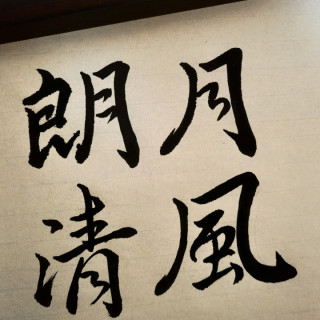 月朗
風清